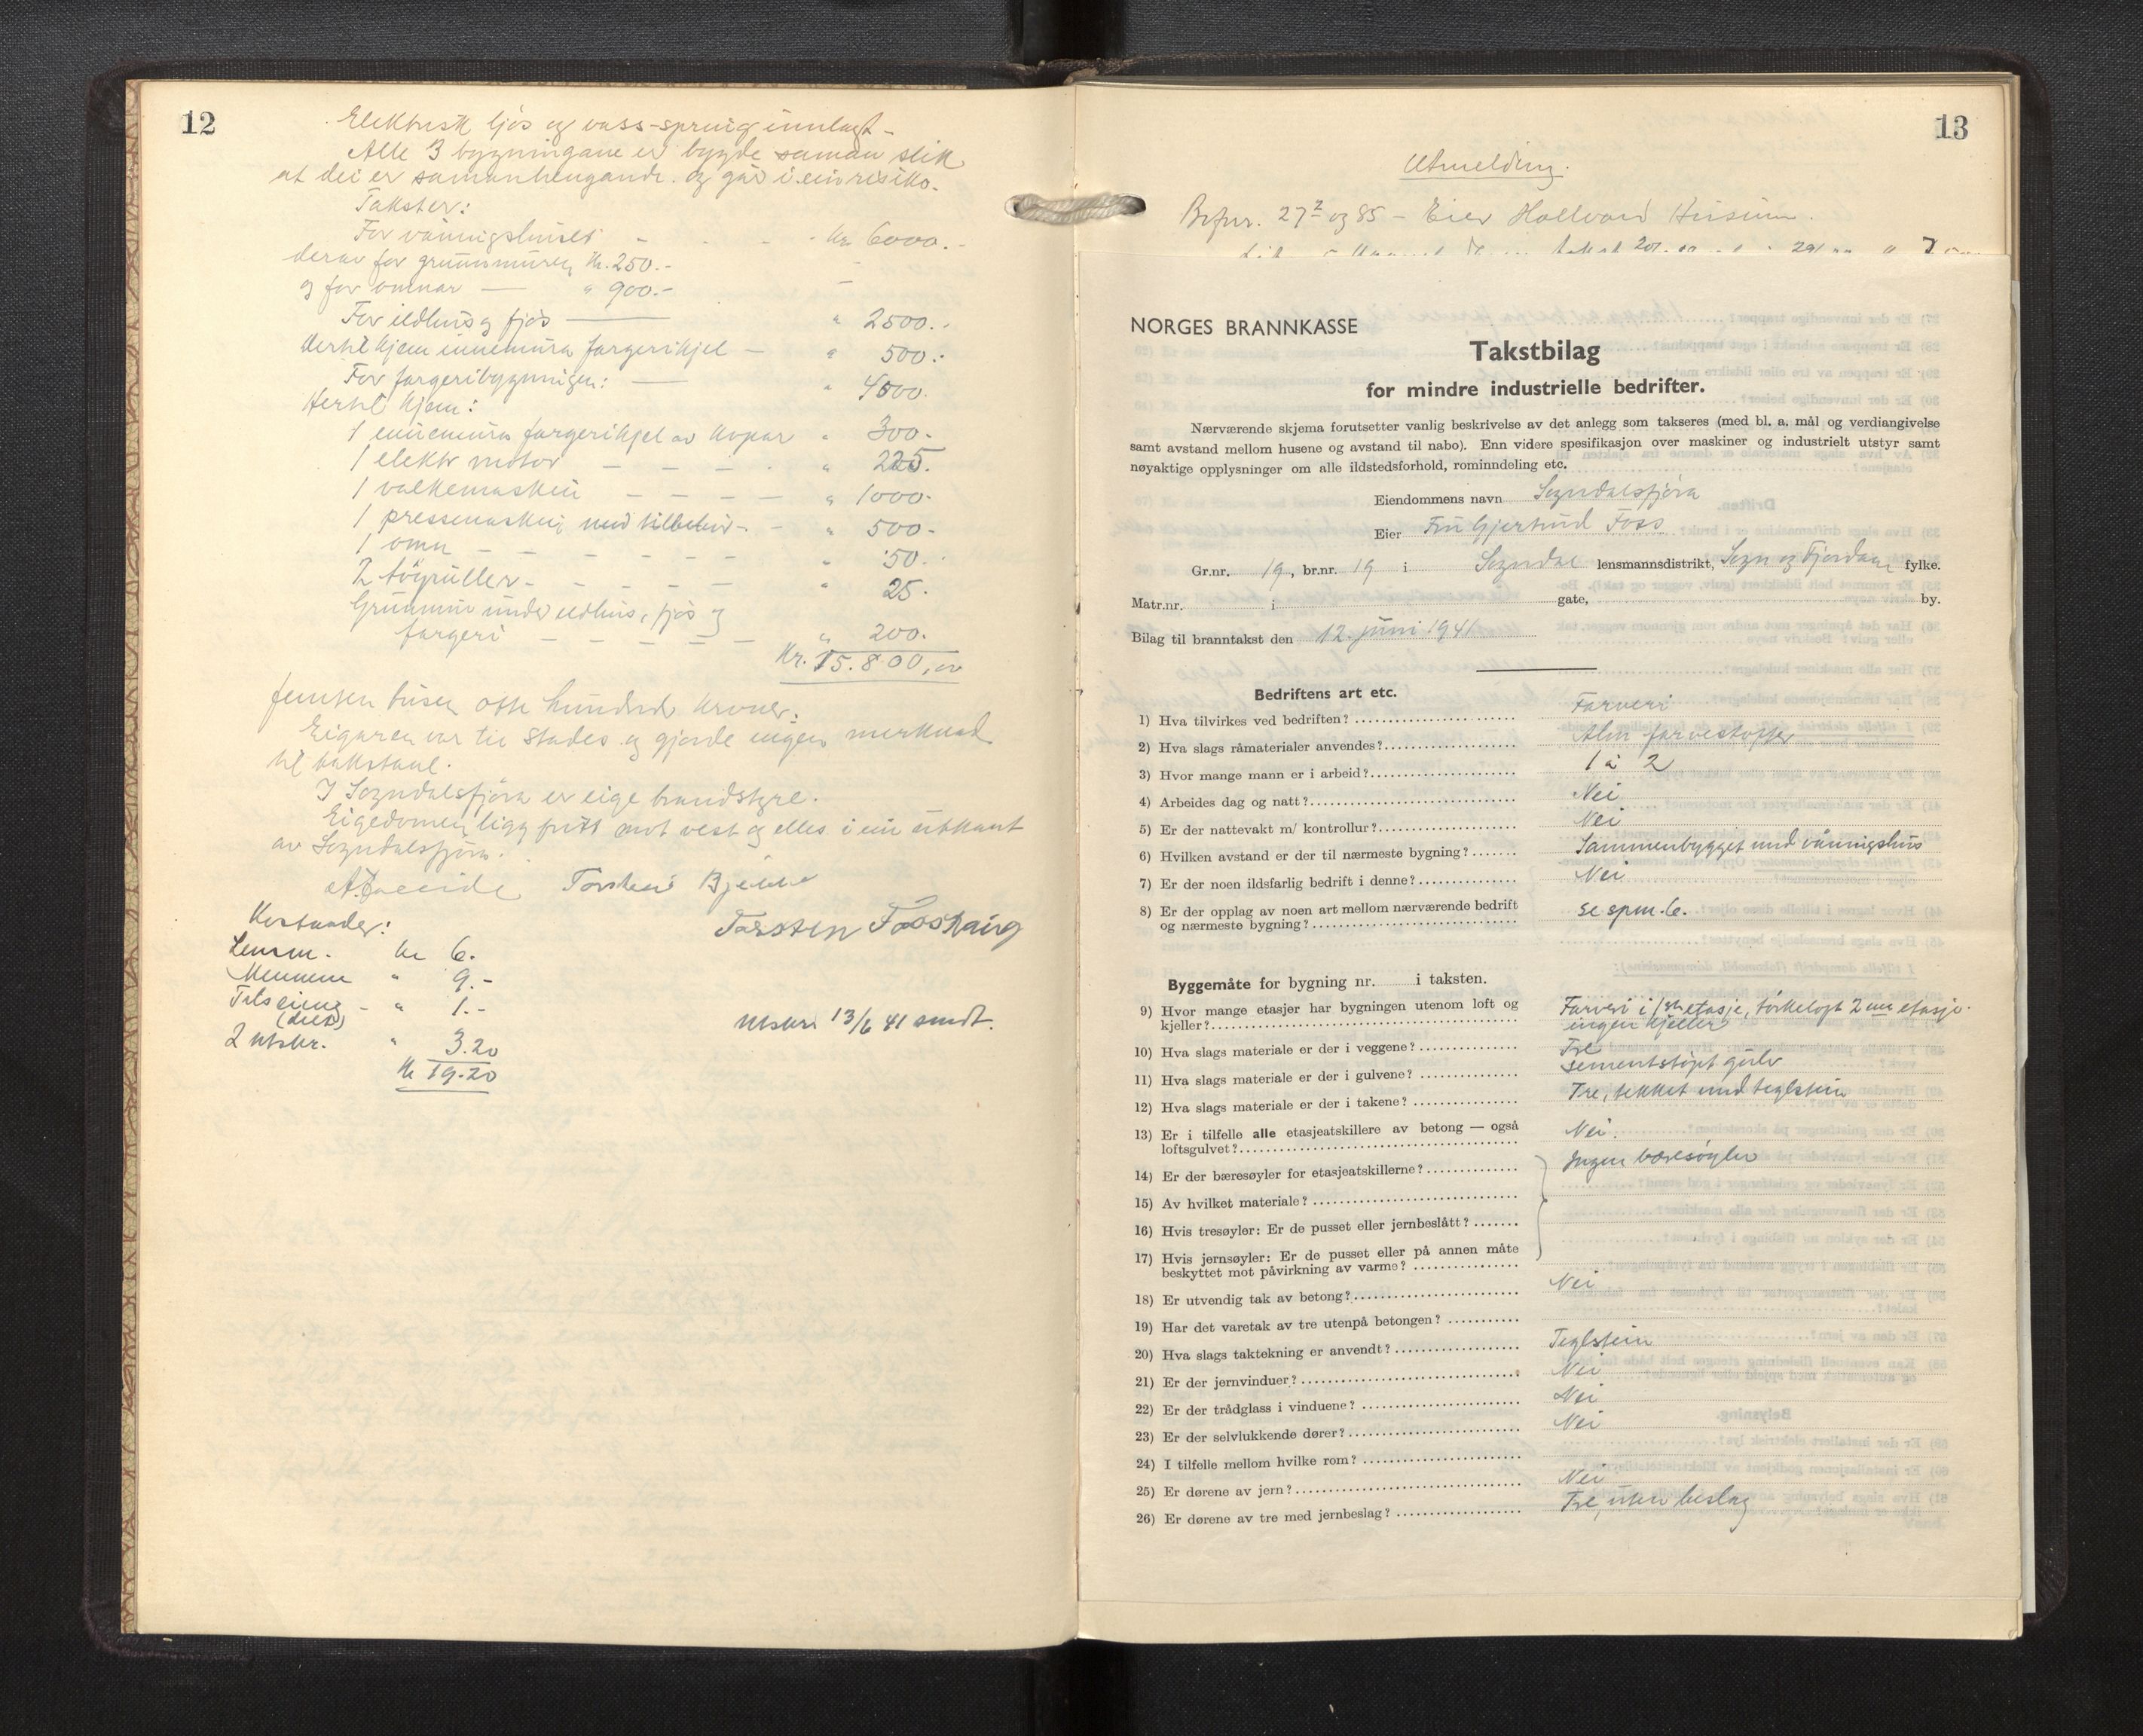 12
Elektrisk ljos og vass-spring innlagt -
Alle 3 bygningane er bygde saman slik
at dei er samanhengande. og går i ein risiko.
Takster:
For våningshuset - - - kr 6000.-
derav for grunnmuren kr. 250.-
og for omnar — " 900.-
For eldhus og fjos — " 2500.-
dertil kjem innemura fargerikjel — " 500.-
For fargeribygningen: — " 4500.
Hertil kjem:
1 innemura fargerikjel av kopar " 300.-
1 elektr motor - - - - " 225.
1 valkemaskin - - - - " 1000.-
1 pressemaskin med tilbehör - - " 500.-
1 omn - - - - - - " 50.-
2 töyruller - - - - - " 25.
Grunnmur under eldhus, fjos og
fargeri - - - - - " 200.
Kr. 15.800, er
femten tusen otte hundrede kroner.
Eigaren var til stades og gjorde ingen merknad
til takstane.
I Sogndalsfjöra er eige brandstyre.
Eigedomen ligg fritt mot vest og elles i ein utkant
av Sogndalsfjöra.
Torstein
Kostnader:
Lensm. kr 6.-
Mennene " 9.-
1.-
2 utskr. " 3.20
Kr 19.20
Utskr. 13/6 41 sendt.
13
Utmelding.
27 og 85 - Eier Hallvard Husum.
NORGES BRANNKASSE
Takstbilag
for mindre industrielle bedrifter.
Nærværende skjema forutsetter vanlig beskrivelse av det anlegg som takseres (med bl. a. mål og verdiangivelse
samt avstand mellom husene og avstand til nabo). Enn videre spesifikasjon over maskiner og industrielt utstyr samt
nøyaktige opplysninger om alle ildstedsforhold, rominndeling etc.
Eiendommens navn Sogndalsfjöra
Eier Fru Gjertrud Foss
Gr.nr. 19, br.nr. 19 i Sogndal lensmannsdistrikt, Sogn og Fjordane fylke.
Matr.nr. i gate, by.
Bilag til branntakst den 12. juni 1941
Bedriftens art etc.
1) Hva tilvirkes ved bedriften? Farveri
2) Hva slags råmaterialer anvendes? Alm farvestoffer
3) Hvor mange mann er i arbeid? 1 à 2
4) Arbeides dag og natt? Nei
5) Er der nattevakt m/ kontrollur? Nei
6) Hvilken avstand er der til nærmeste bygning? Sammenbygget med våningshus
7) Er der noen ildsfarlig bedrift i denne? Nei
8) Er der opplag av noen art mellom nærværende bedrift
og nærmeste bygning? se spm. 6.
Byggemåte for bygning nr. i taksten.
9) Hvor mange etasjer har bygningen utenom loft og
kjeller? Farveri i 1ste etasje, törkeloft 2nne etasje.
ingen kjeller
10) Hva slags materiale er der i veggene? Tre
11) Hva slags materiale er der i gulvene? sementstöpt gulv
12) Hva slags materiale er der i takene? Tre, tekket med teglstein
13) Er i tilfelle alle etasjeatskillere av betong — også
loftsgulvet? Nei.
14) Er der bæresøyler for etasjeatskillerne? Ingen bæresöyler
15) Av hvilket materiale?
16) Hvis tresøyler: Er de pusset eller jernbeslått?
17) Hvis jernsøyler: Er de pusset eller på annen måte
beskyttet mot påvirkning av varme?
18) Er utvendig tak av betong? Nei
19) Har det varetak av tre utenpå betongen?
20) Hva slags taktekning er anvendt? Teglstein
21) Er der jernvinduer? Nei
22) Er der trådglass i vinduene? Nei
23) Er der selvlukkende dører? Nei
24) I tilfelle mellom hvilke rom?
25) Er dørene av jern? Nei
26) Er dørene av tre med jernbeslag? Tre, uten beslag